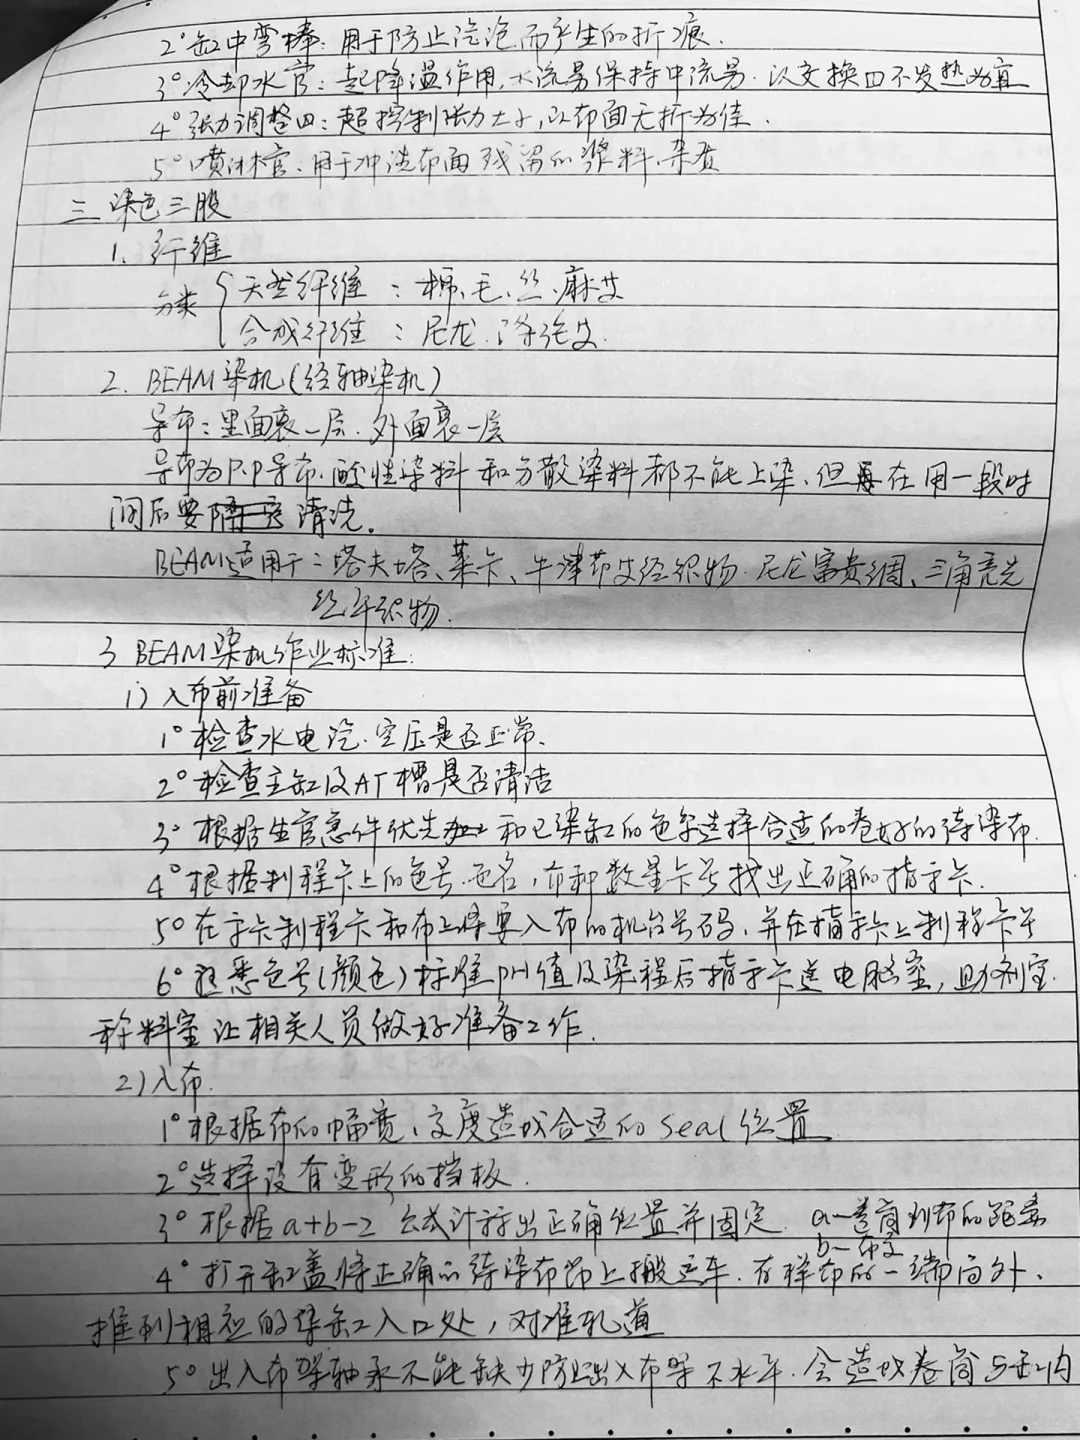 2° 缸中弯棒: 用于防止汽泡而产生的折痕.
3° 冷却水管: 起降温作用, 水流易保持中流易. 以交换四不发热为宜
4° 张力调整四: 超控制张力大小, 以布面无折为佳.
5° 喷淋管: 用于冲洗布面残留的浆料、杂质
三 染色三股
1. 纤维
分类 { 天然纤维 : 棉、毛、丝、麻等
合成纤维 : 尼龙、涤纶等.
2. BEAM染机(经轴染机)
导布: 里面裹一层. 外面裹一层
导布为P.P导布. 酸性染料和分散染料都不能上染, 但在用一段时
间后要清洗.
BEAM适用于: 塔夫塔、莱卡、牛津布等经织物. 尼龙富贵绸、三角亮光
丝平织物.
3 BEAM染机作业标准:
1) 入布前准备
1° 检查水电汽. 空压是否正常、
2° 检查主缸及AT槽是否清洁
3° 根据生管急件优先和已染缸的色号选择合适的卷好的待染布.
4° 根据制程卡上的色号. 色名, 布种数量卡号找出正确的指示卡.
5° 在制程卡和布上将要入布的机台号码, 并在指示卡上制程卡号
6° 熟悉色号(颜色)标准PH值及染程后指示卡送电脑室, 助剂室.
称料室让相关人员做好准备工作.
2) 入布.
1° 根据布的幅宽、高度造成合适的seal位置
2° 选择没有变形的挡板.
3° 根据a+b-2 公式计算出正确位置并固定. a—卷筒到布的距离
b—布
4° 打开缸盖将正确的待染布吊上搬运车. 有样布的一端向外、
推到相应的染缸入口处, 对准轨道
5° 出入布架轴承不能缺少防止出入布架不水平. 会造成卷筒与缸内